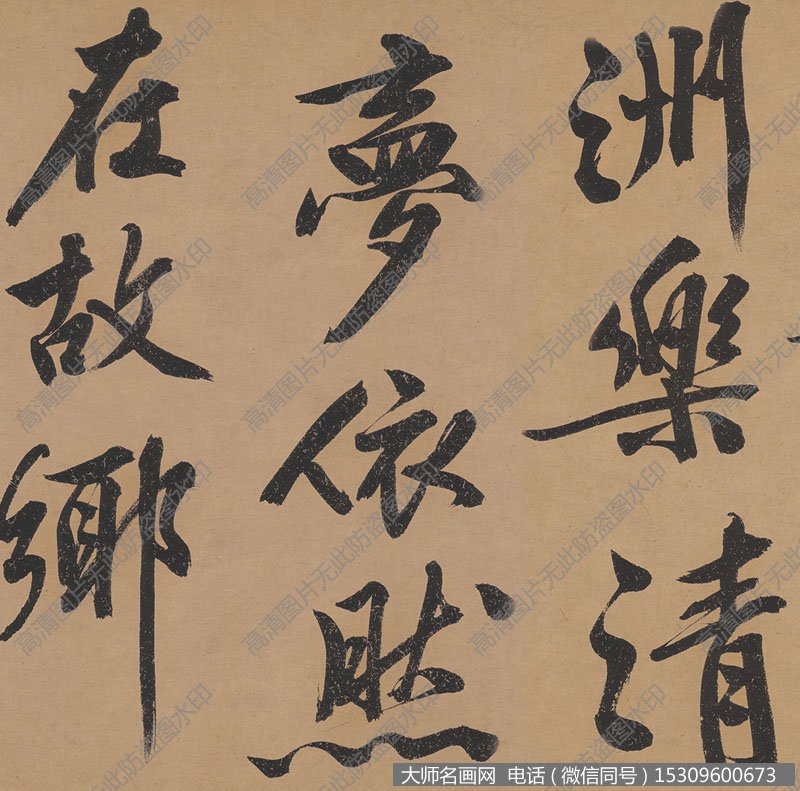 洲樂清
夢依然
在故鄉
高清图片无此防盗图水印
大师名画网 电话（微信同号）15309600673